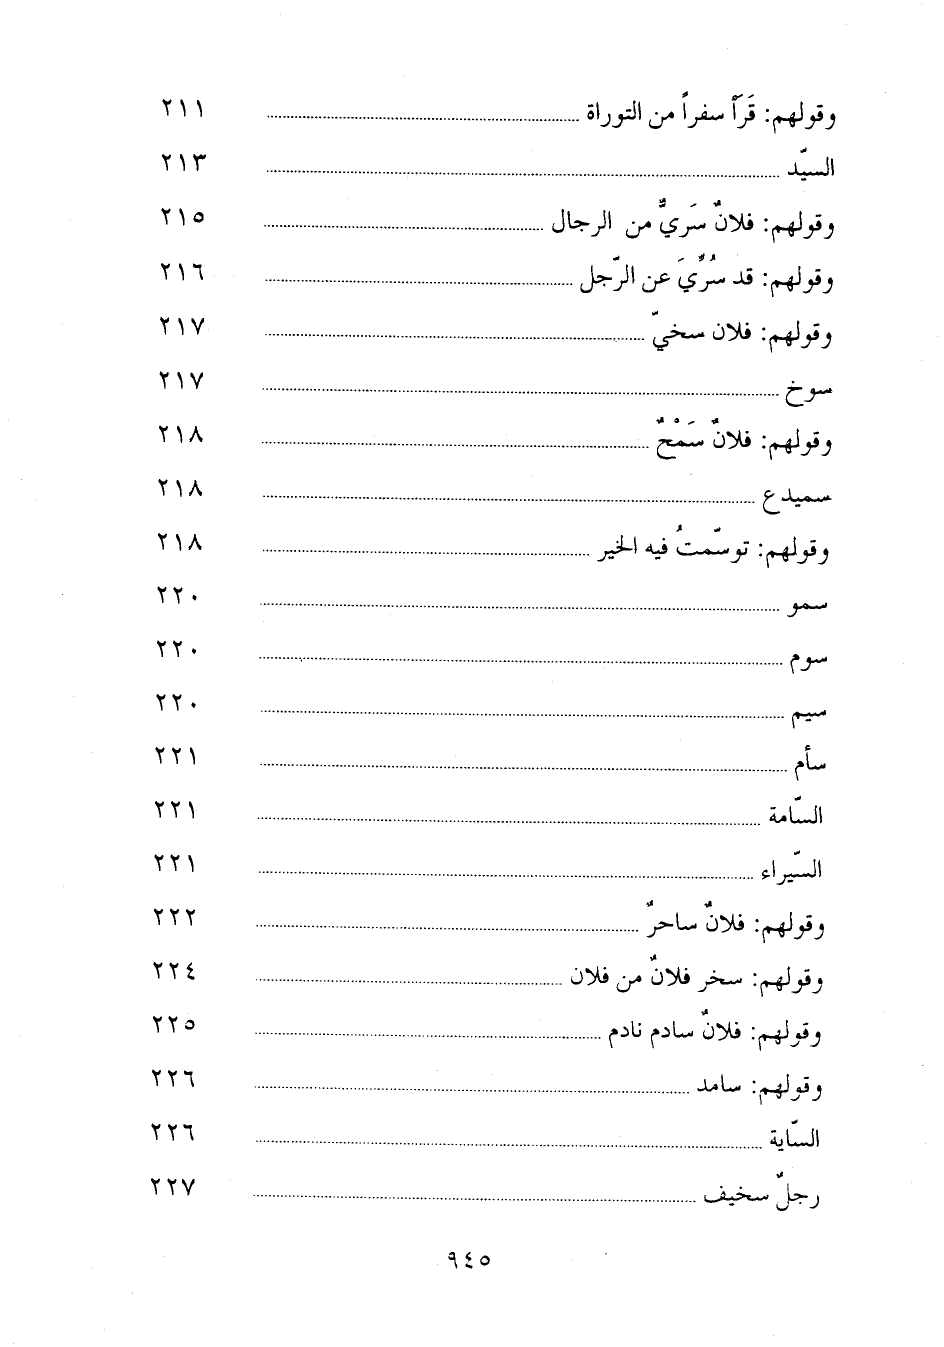 وقولهم: قَرَأَ سفراً من التوراة ........ ٢١١
السيّد ........ ٢١٣
وقولهم: فلانٌ سَريٌّ من الرجال ........ ٢١٥
وقولهم: قد سُرِّيَ عن الرّجل ........ ٢١٦
وقولهم: فلان سخيّ ........ ٢١٧
سوخ ........ ٢١٧
وقولهم: فلانٌ سَمْحٌ ........ ٢١٨
سميدع ........ ٢١٨
وقولهم: توسّمتُ فيه الخير ........ ٢١٨
سمو ........ ٢٢٠
سوم ........ ٢٢٠
سيم ........ ٢٢٠
سأم ........ ٢٢١
السّامة ........ ٢٢١
السّيراء ........ ٢٢١
وقولهم: فلانٌ ساحرٌ ........ ٢٢٢
وقولهم: سخر فلانٌ من فلان ........ ٢٢٤
وقولهم: فلانٌ سادم نادم ........ ٢٢٥
وقولهم: سامد ........ ٢٢٦
السّاية ........ ٢٢٦
رجلٌ سخيف ........ ٢٢٧
٩٤٥